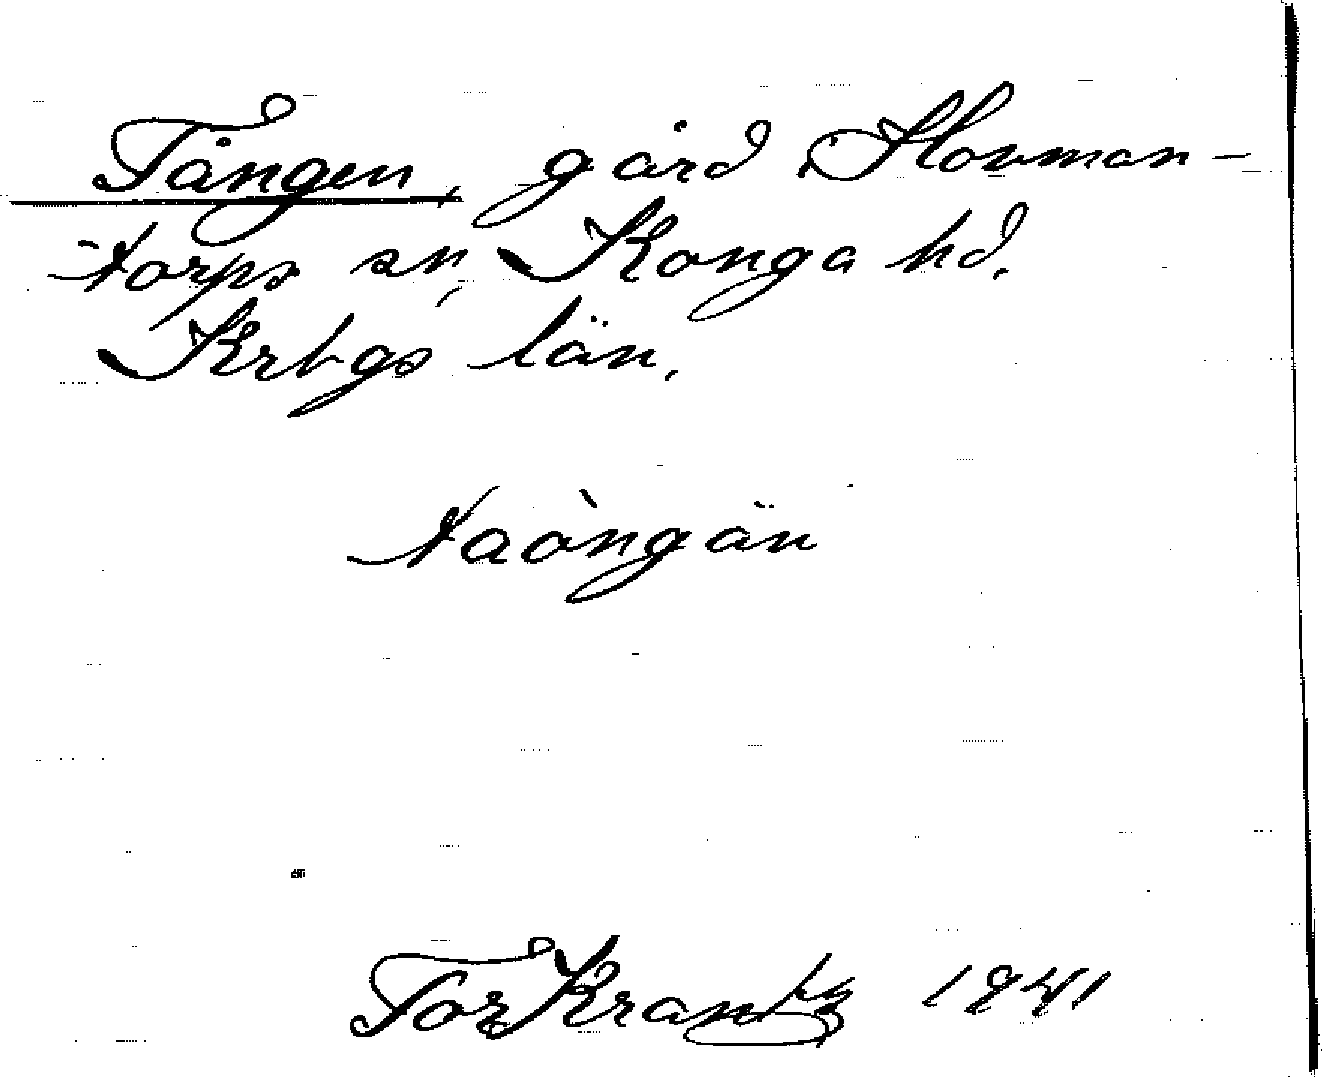 Tången, gård, Hovman-
torps sn, Konga hd.
Krbgs län.
taòngän
Tor Krantz 1941